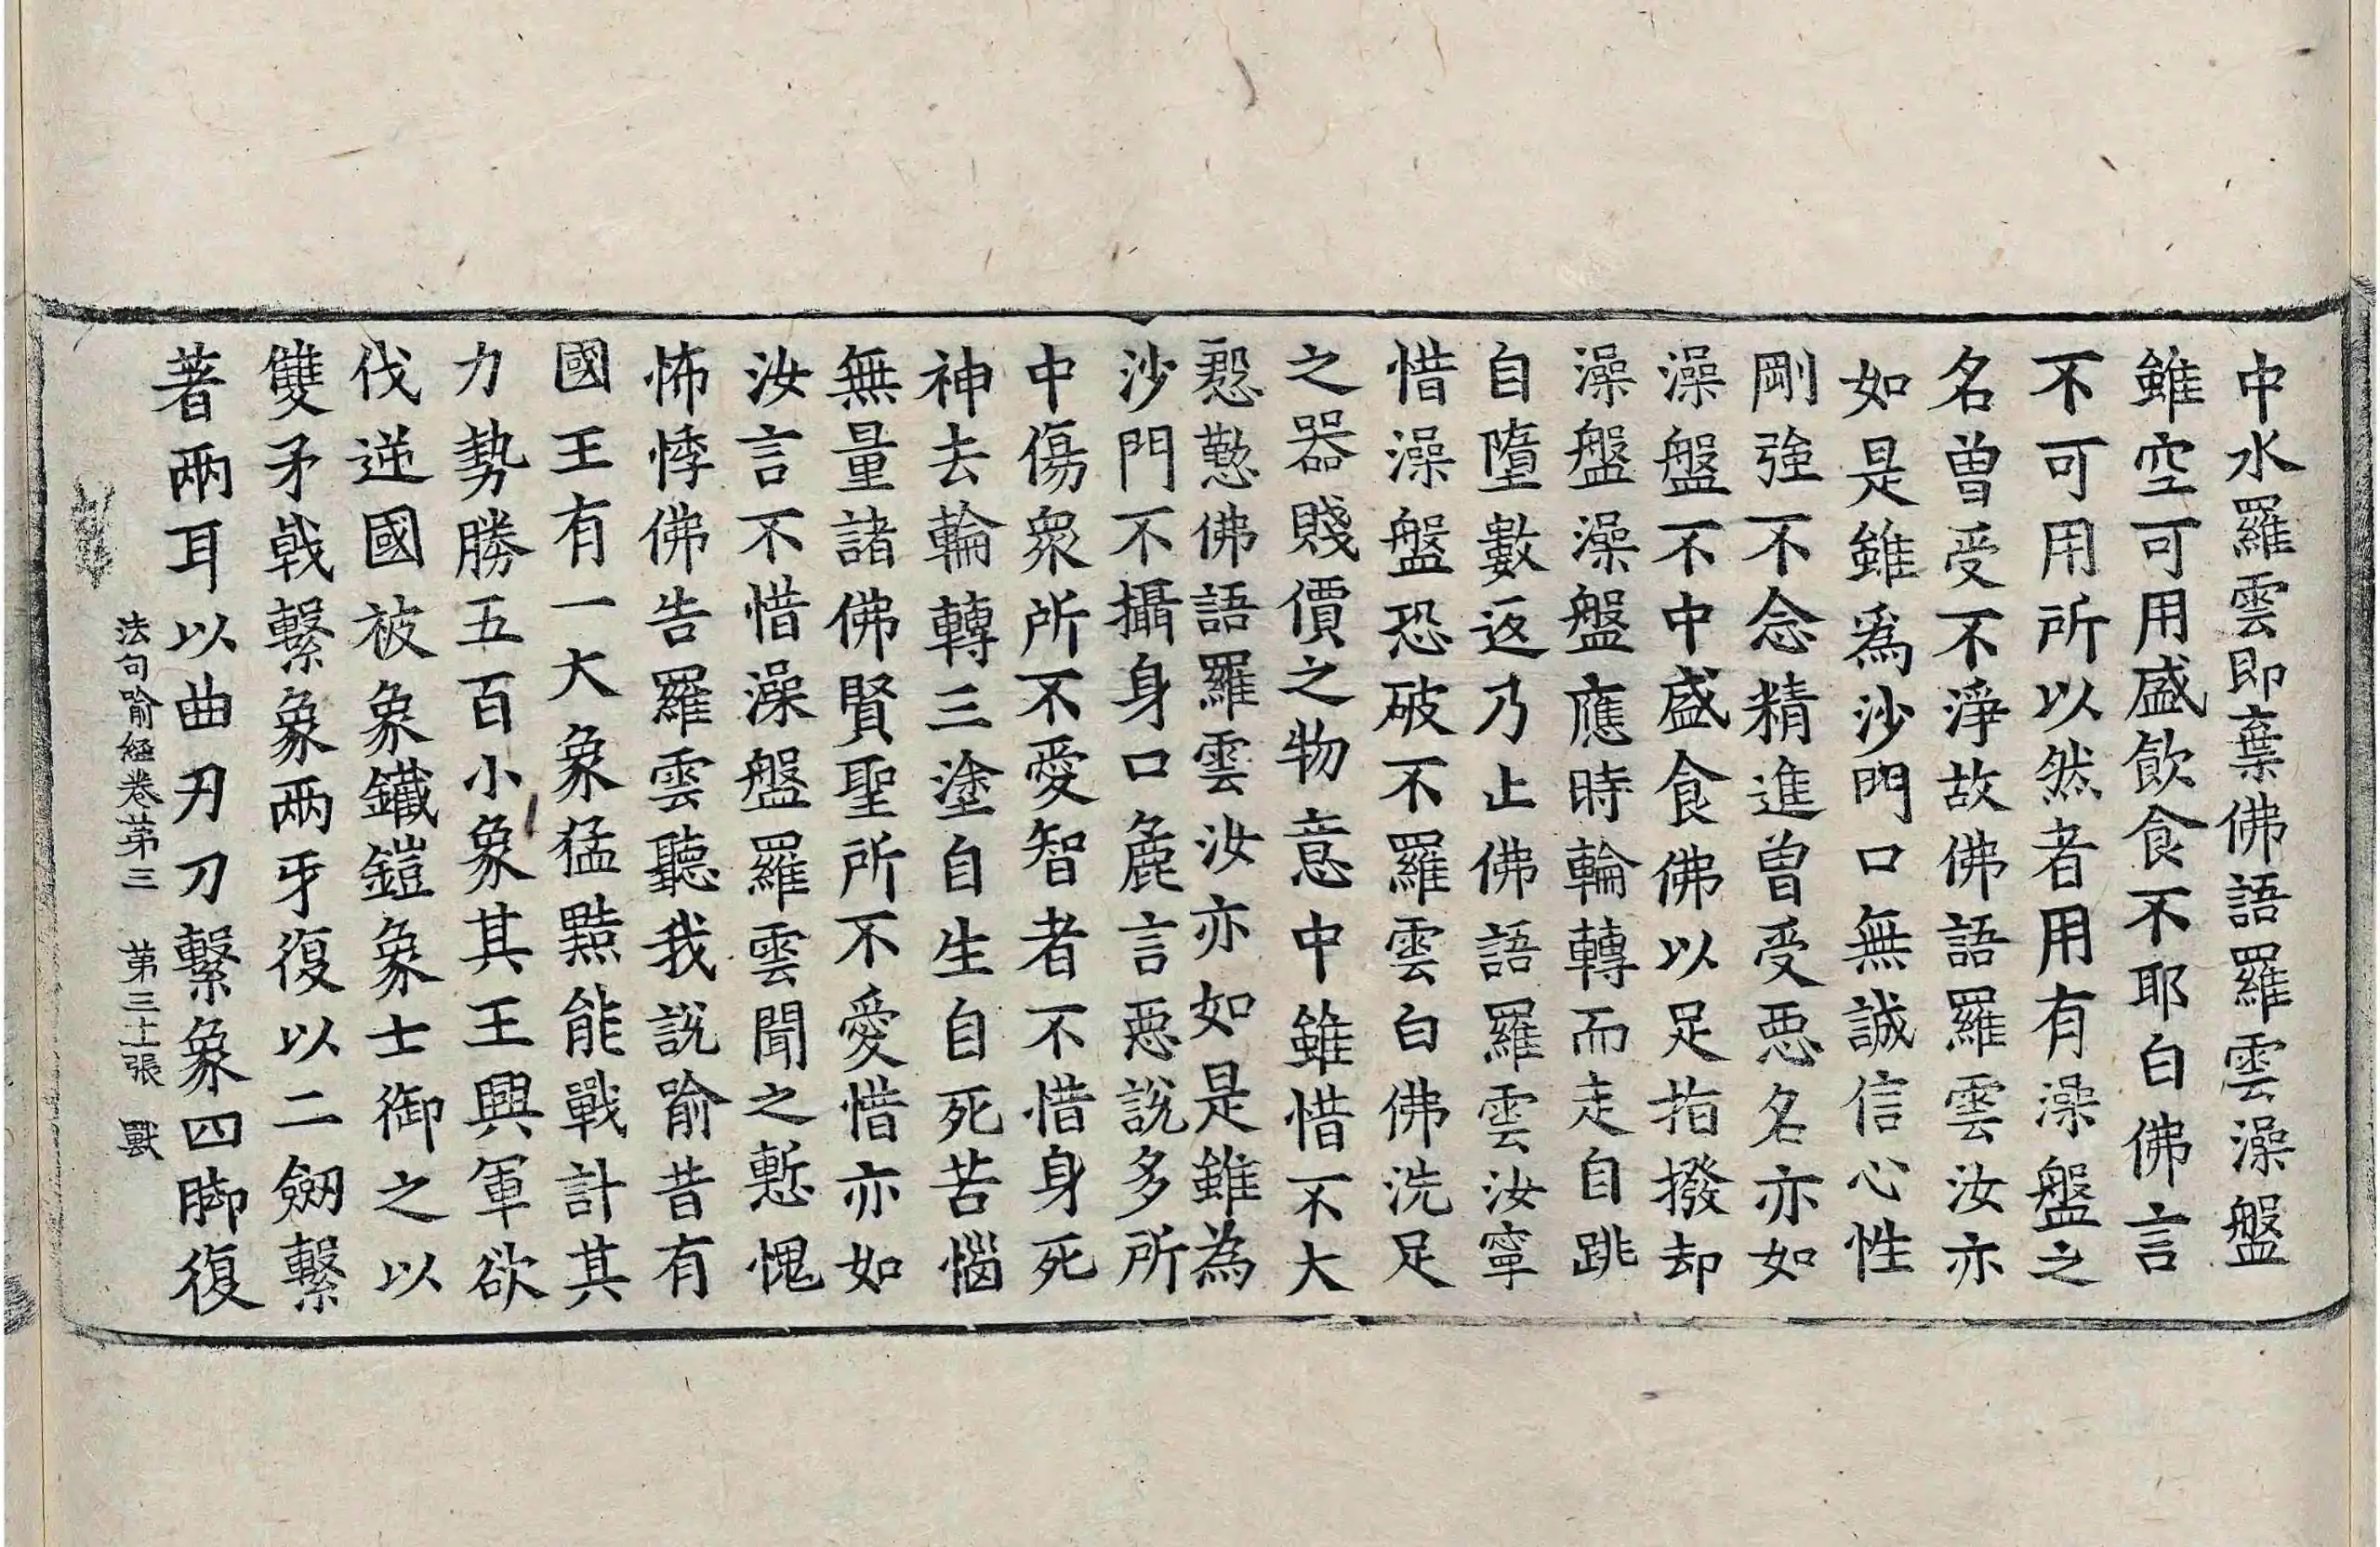 中水羅雲即棄佛語羅雲澡盤
雖空可用盛飲食不耶白佛言
不可用所以然者用有澡盤之
名曾受不淨故佛語羅雲汝亦
如是雖爲沙門口無誠信心性
剛強不念精進曾受惡名亦如
澡盤不中盛食佛以足指撥却
澡盤澡盤應時輪轉而走自跳
自墮數返乃止佛語羅雲汝寧
惜澡盤恐破不羅雲白佛洗足
之器賤價之物意中雖惜不大
慇懃佛語羅雲汝亦如是雖為
沙門不攝身口麁言惡說多所
中傷衆所不愛智者不惜身死
神去輪轉三塗自生自死苦惱
無量諸佛賢聖所不愛惜亦如
汝言不惜澡盤羅雲聞之慙愧
怖悸佛告羅雲聽我說喻昔有
國王有一大象猛黠能戰計其
力勢勝五百小象其王興軍欲
伐逆國被象鐵鎧象士御之以
雙矛戟繫象兩牙復以二劒繫
著兩耳以曲刃刀繫象四脚復
法句喻經卷苐三 苐三十張